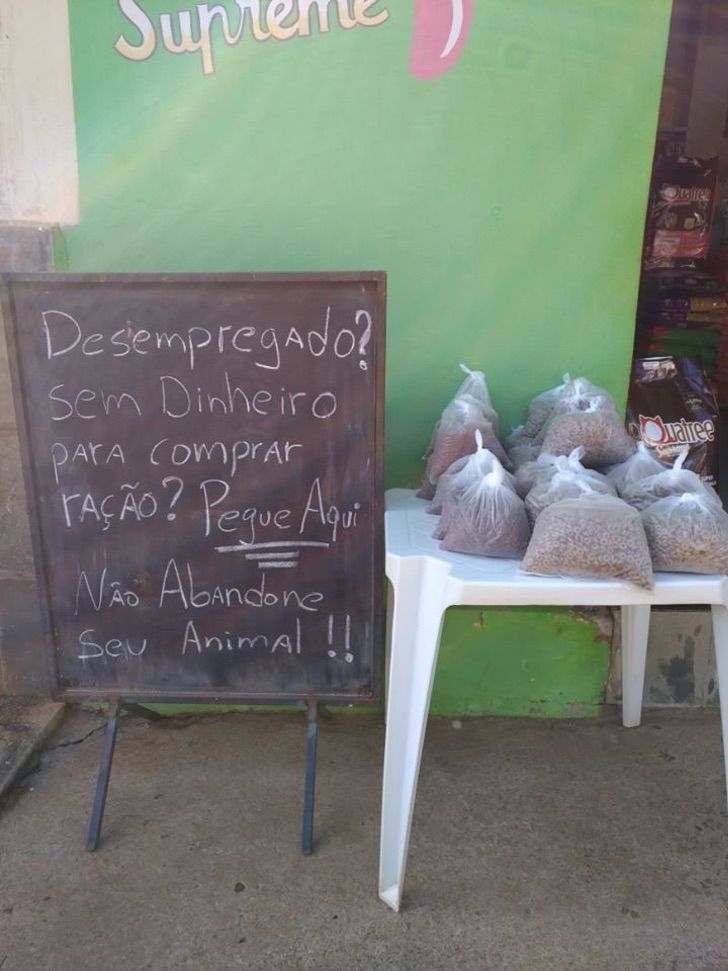 Supreme
Quatree
Desempregado?
sem Dinheiro
para comprar
ração? Pegue Aqui
Não Abandone
Seu Animal !!
Quatree